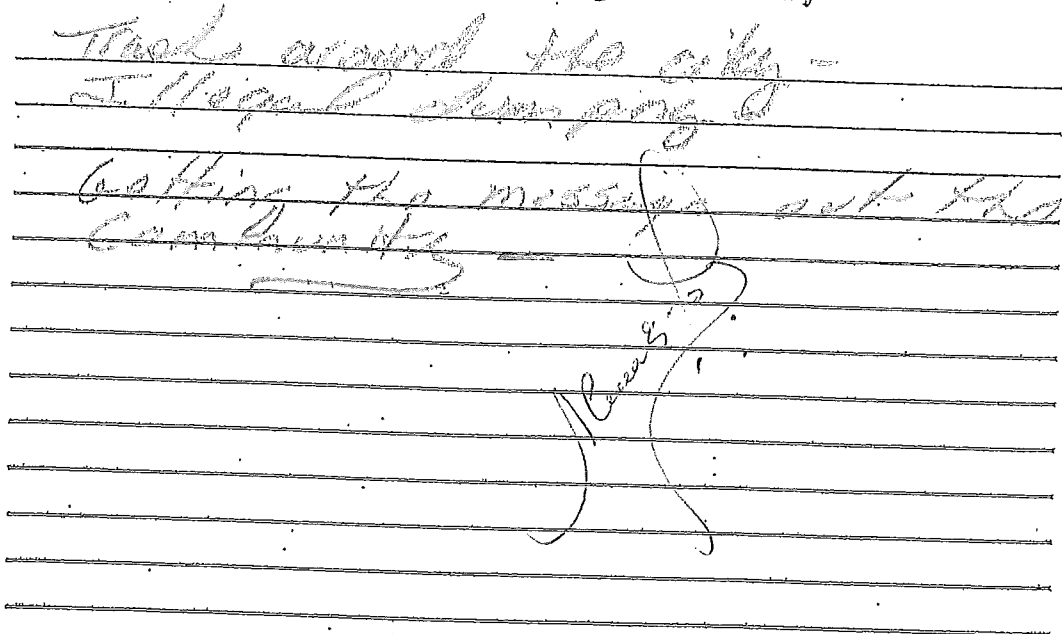 Trash around the city -
Illegal dumping
Getting the message out the
Community -